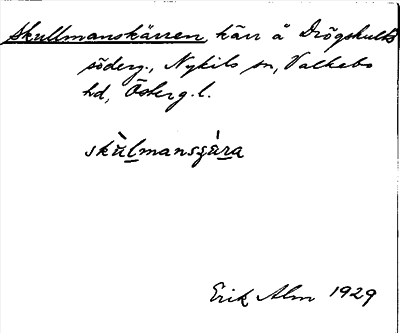 Skullmanskärren kärr å Drögshults
söderg., Nykils sn, Valkebo
hd, Österg. l.
skùlmansɕàra
Erik Alm 1929